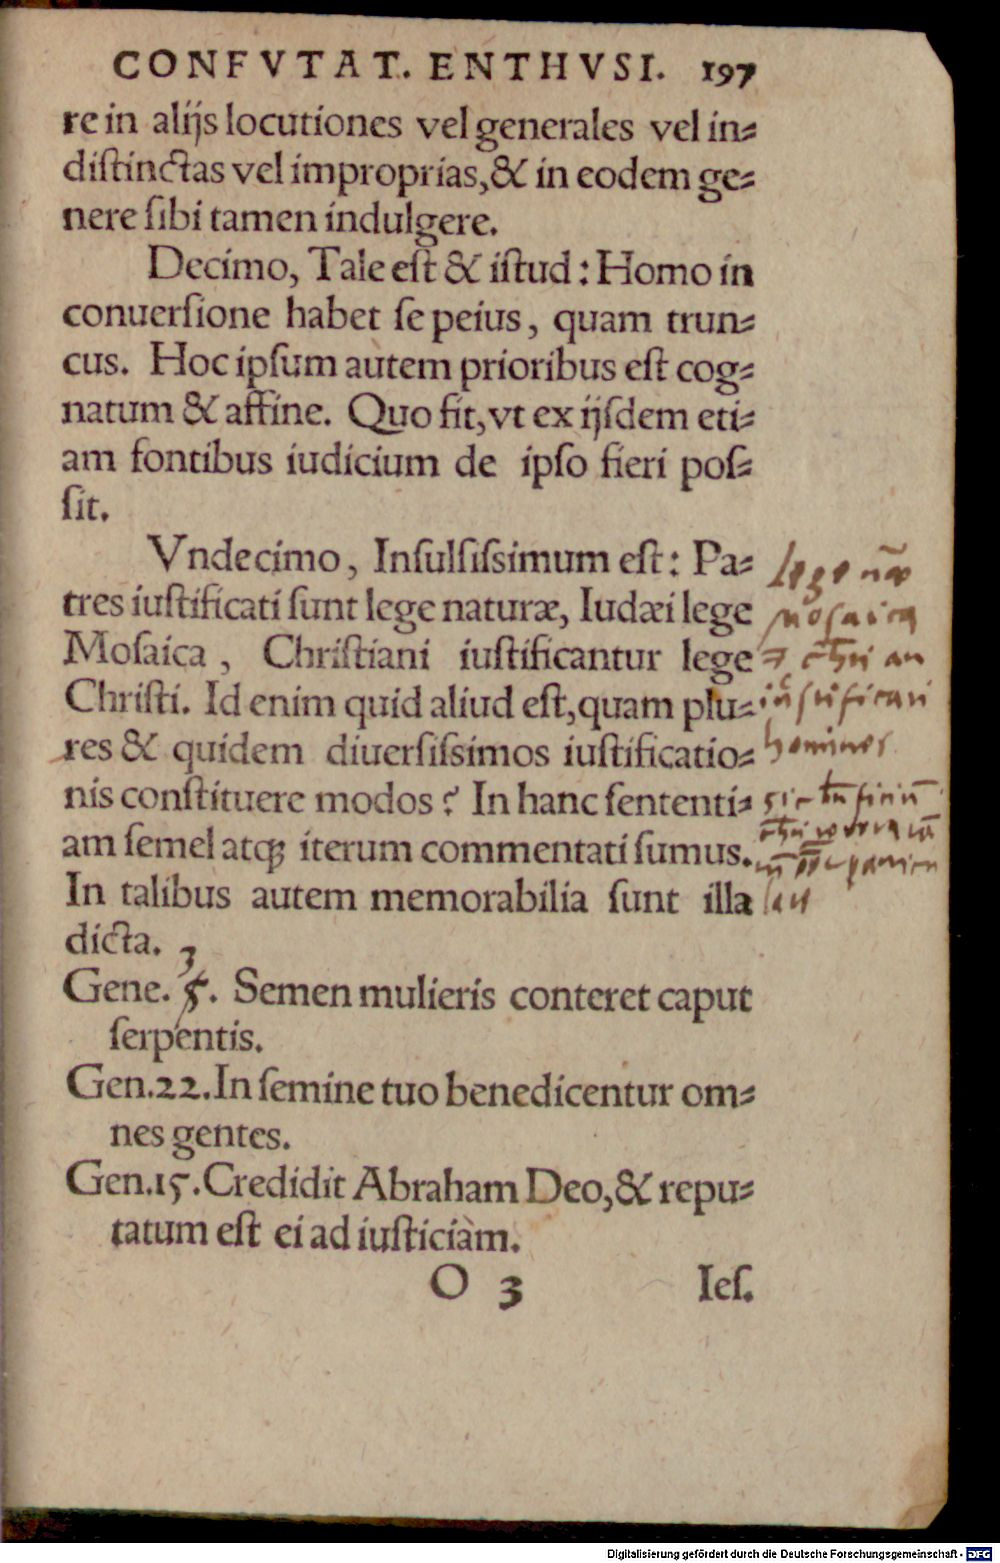 CONFVTAT. ENTHVSI. 197
re in alijs locutiones vel generales vel in⸗
diſtinctas vel improprias,& in eodem ge⸗
nere ſibi tamen indulgere.
Decimo, Tale eſt & iſtud : Homo in
conuerſione habet ſe peius, quam trun⸗
cus. Hoc ipſum autem prioribus eſt cog⸗
natum & affine. Quo fit, vt ex ijſdem eti⸗
am fontibus iudicium de ipſo fieri poſ⸗
ſit.
Vndecimo, Inſulſiſsimum eſt: Pa⸗
tres iuſtificati ſunt lege naturæ, Iudæi lege
Moſaica, Chriſtiani iuſtificantur lege
Chriſti. Id enim quid aliud eſt, quam plu⸗
res & quidem diuerſiſsimos iuſtificatio⸗
nis conſtituere modos? In hanc ſententi⸗
am ſemel atqꝫ iterum commentati ſumus.
In talibus autem memorabilia ſunt illa
dicta.
3
Gene. 5. Semen mulieris conteret caput
ſerpentis.
Gen.22. In ſemine tuo benedicentur om⸗
nes gentes.
Gen.15. Credidit Abraham Deo,& repu⸗
tatum eſt ei ad iuſticiam.
O 3 Ieſ.
Lege
Moſaica
an
iuſtificari
homines
Digitalisierung gefördert durch die Deutsche Forschungsgemeinschaft - DFG